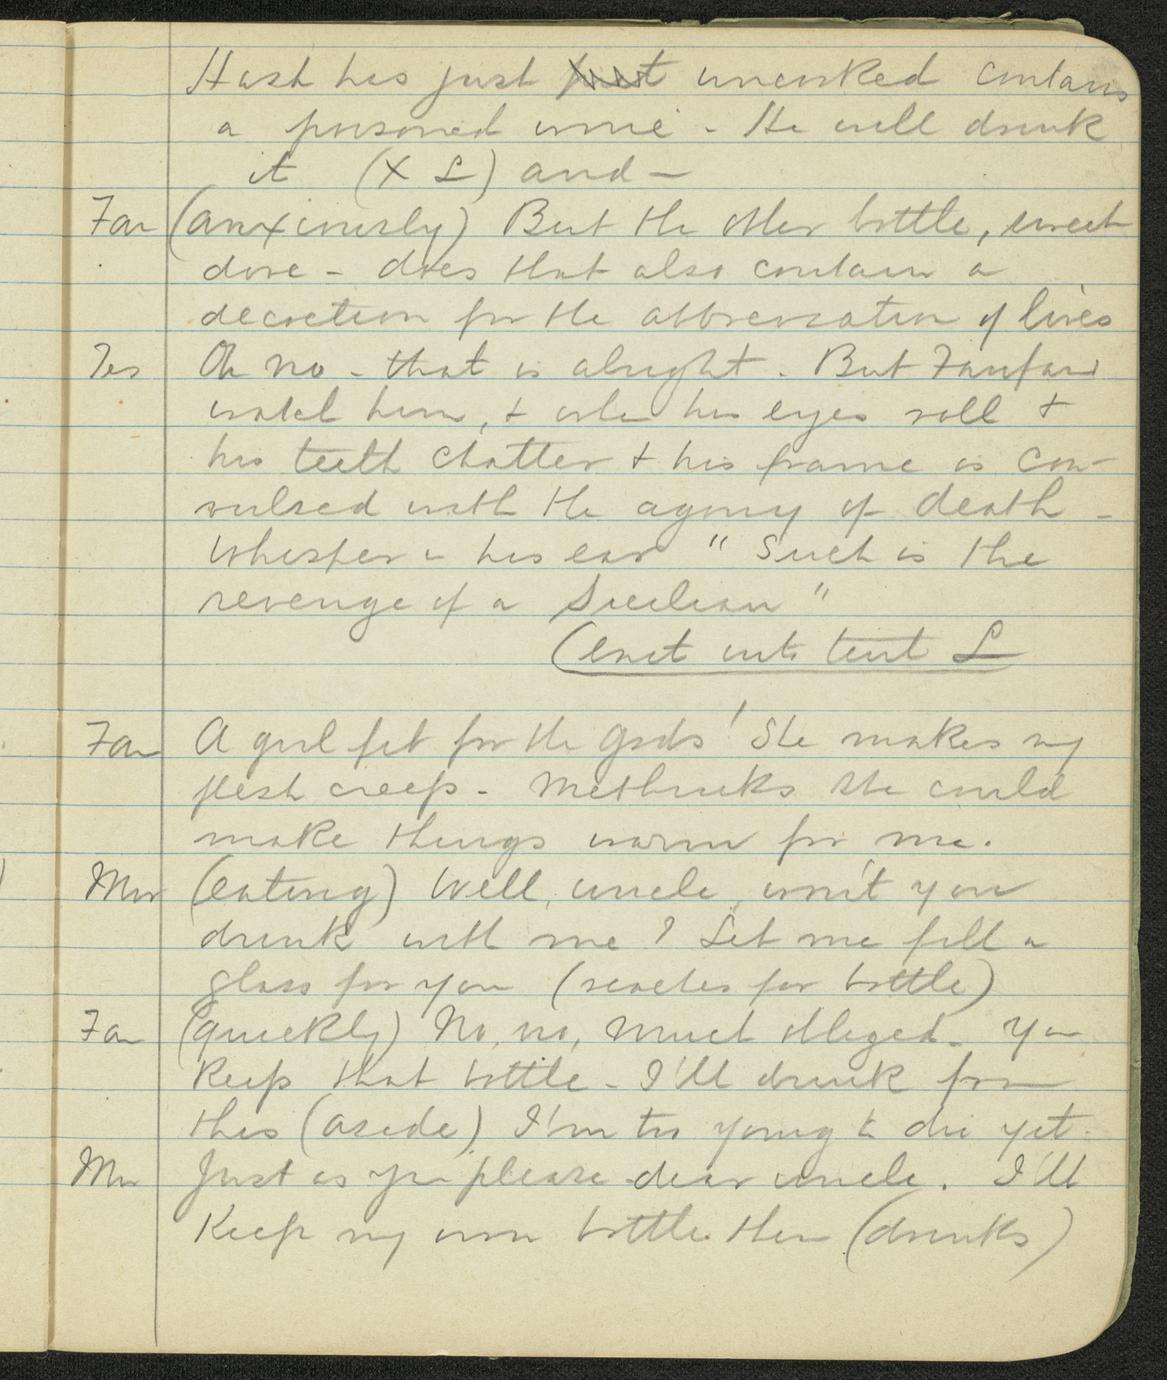 Hash has just just uncorked contains
a poisoned wine - He will drink
it (X L) and -
Fan (anxiously) But the other bottle, sweet
dove - does that also contain a
decoction for the abbreviation of lives
Tes Oh no - that is alright. But Fanfani
watch him, & when his eyes roll &
his teeth chatter & his frame is con-
vulsed with the agony of death -
Whisper in his ear " Such is the
revenge of a Sicilian "
(Exit into tent L
Fan A girl fit for the Gods! She makes my
flesh creep - Methinks she could
make things warm for me.
Mur (eating) Well, uncle, won't you
drink with me? Let me fill a
glass for you (reaches for bottle)
Fan (quickly) No, no, much obliged - You
keep that bottle - I'll drink from
this (aside) I'm too young to die yet.
Mur Just as you please dear uncle. I'll
Keep my own bottle then (drinks)